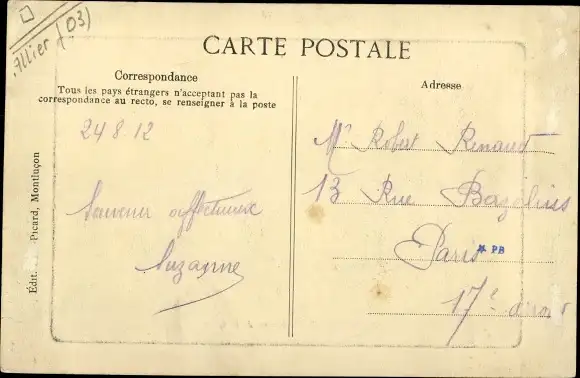 Allier (03)
CARTE POSTALE
Correspondance
Tous les pays étrangers n'acceptant pas la
correspondance au recto, se renseigner à la poste
24 8 12
Souvenir affectueux
Suzanne
Édit. Picard, Montluçon
Adresse
Mr Robert Renaud
13 Rue
Paris
* PB
17e